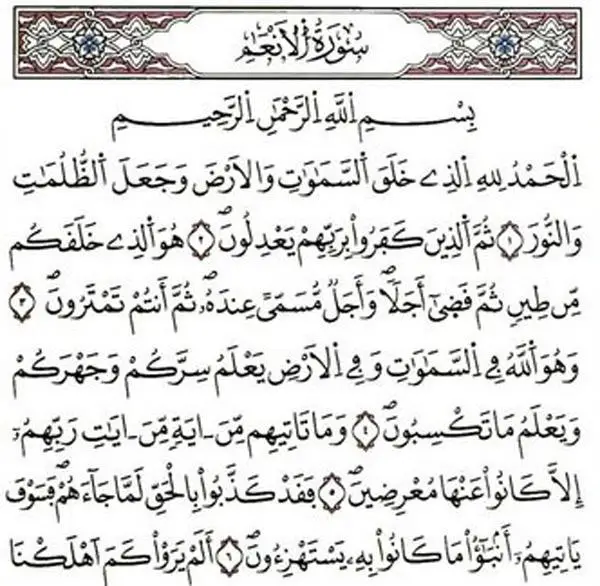 سُورَةُ الْأَنْعَٰمِ
بِسْمِ اِ۬للَّهِ اِ۬لرَّحْمَٰنِ اِ۬لرَّحِيمِ
اِ۬لْحَمْدُ لِلهِ اِ۬لذِے خَلَقَ اَ۬لسَّمَٰوَٰتِ وَالَارْضَ وَجَعَلَ اَ۬لظُّلُمَٰتِ
وَالنُّورَ ١ ثُمَّ اَ۬لذِينَ كَفَرُواْ بِرَبِّهِمْ يَعْدِلُونَۖ ٢ هُوَ اَ۬لذِے خَلَقَكُم
مِّن طِينٖ ثُمَّ قَضَىٰٓ أَجَلاٗۖ وَأَجَلٞ مُّسَمّيً عِندَهُۥۖ ثُمَّ أَنتُمْ تَمْتَرُونَۖ ٣
وَهُوَ اَ۬للَّهُ فِے اِ۬لسَّمَٰوَٰتِ وَفِے اِ۬لَارْضِ يَعْلَمُ سِرَّكُمْ وَجَهْرَكُمْ
وَيَعْلَمُ مَا تَكْسِبُونَۖ ٤ وَمَا تَاتِيهِم مِّنَ اٰيَةٖ مِّنَ اٰيَٰتِ رَبِّهِمُۥٓ
إِلَّا كَانُواْ عَنْهَا مُعْرِضِينَۖ ٥ فَقَدْ كَذَّبُواْ بِالْحَقِّ لَمَّا جَآءَهُمْۖ فَسَوْفَ
يَاتِيهِمُۥٓ أَنۢبَٰٓؤُاْ مَا كَانُواْ بِهِۦ يَسْتَهْزِءُونَۖ ٦ أَلَمْ يَرَوْاْ كَمَ اَهْلَكْنَا